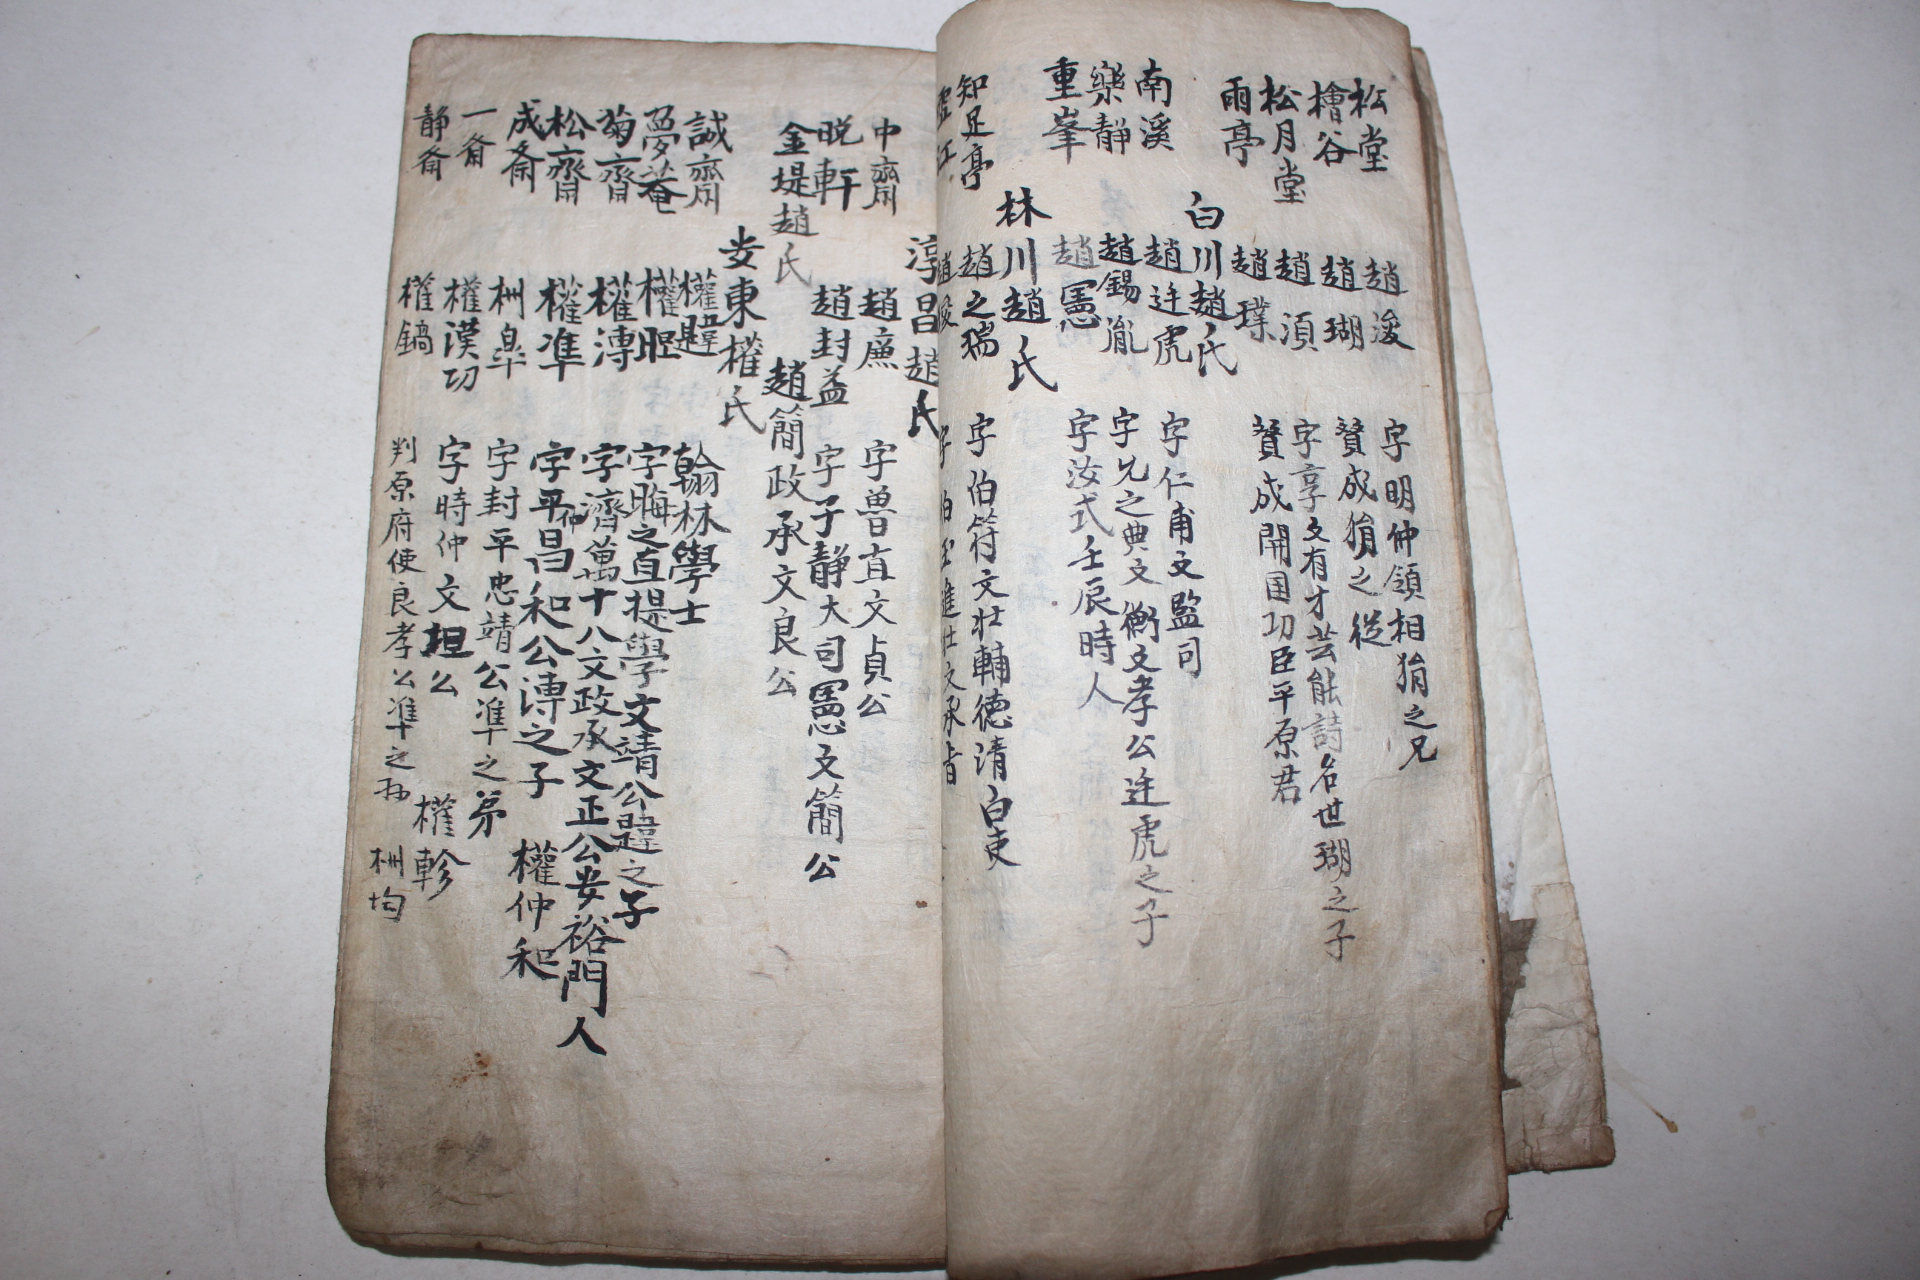 松堂 趙浚 字明仲領相狷之兄
檜谷 趙瑚 贊成狷之從
松月堂 趙須 字亨父有才芸能詩名世瑚之子
雨亭 趙璞 贊成開国功臣平原君
白川趙氏
南溪 趙廷虎 字仁甫文監司
樂静 趙錫胤 字兄之典文衡文孝公廷虎之子
重峯 趙憲 字汝式壬辰時人
林川趙氏
知足亭 趙之瑞 字伯符文壮輔德清白吏
淳昌趙氏
中齋 趙廉 字魯直文貞公
晚軒 趙封益 字子静大司憲文簡公
金堤趙氏 趙簡政承文良公
安東權氏
誠齋 權韙 翰林學士
夢菴 權暄 字晦之直提學文靖公韙之子
菊齊 權溥 字濟萬十八文政承文正公安裕門人
松齊 權準 字平仲昌和公溥之子 權仲和
成斋 权皐 字封平忠靖公準之弟
一斋 權漢功 字時仲文坦公 權軫
静斋 權鎬 判原府使良孝公準之孙